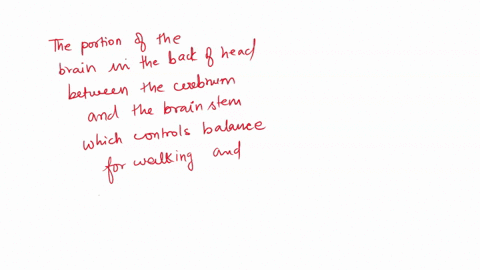 The portion of the
brain in the back of head
between the cerebrum
and the brain stem
which controls balance
for walking and